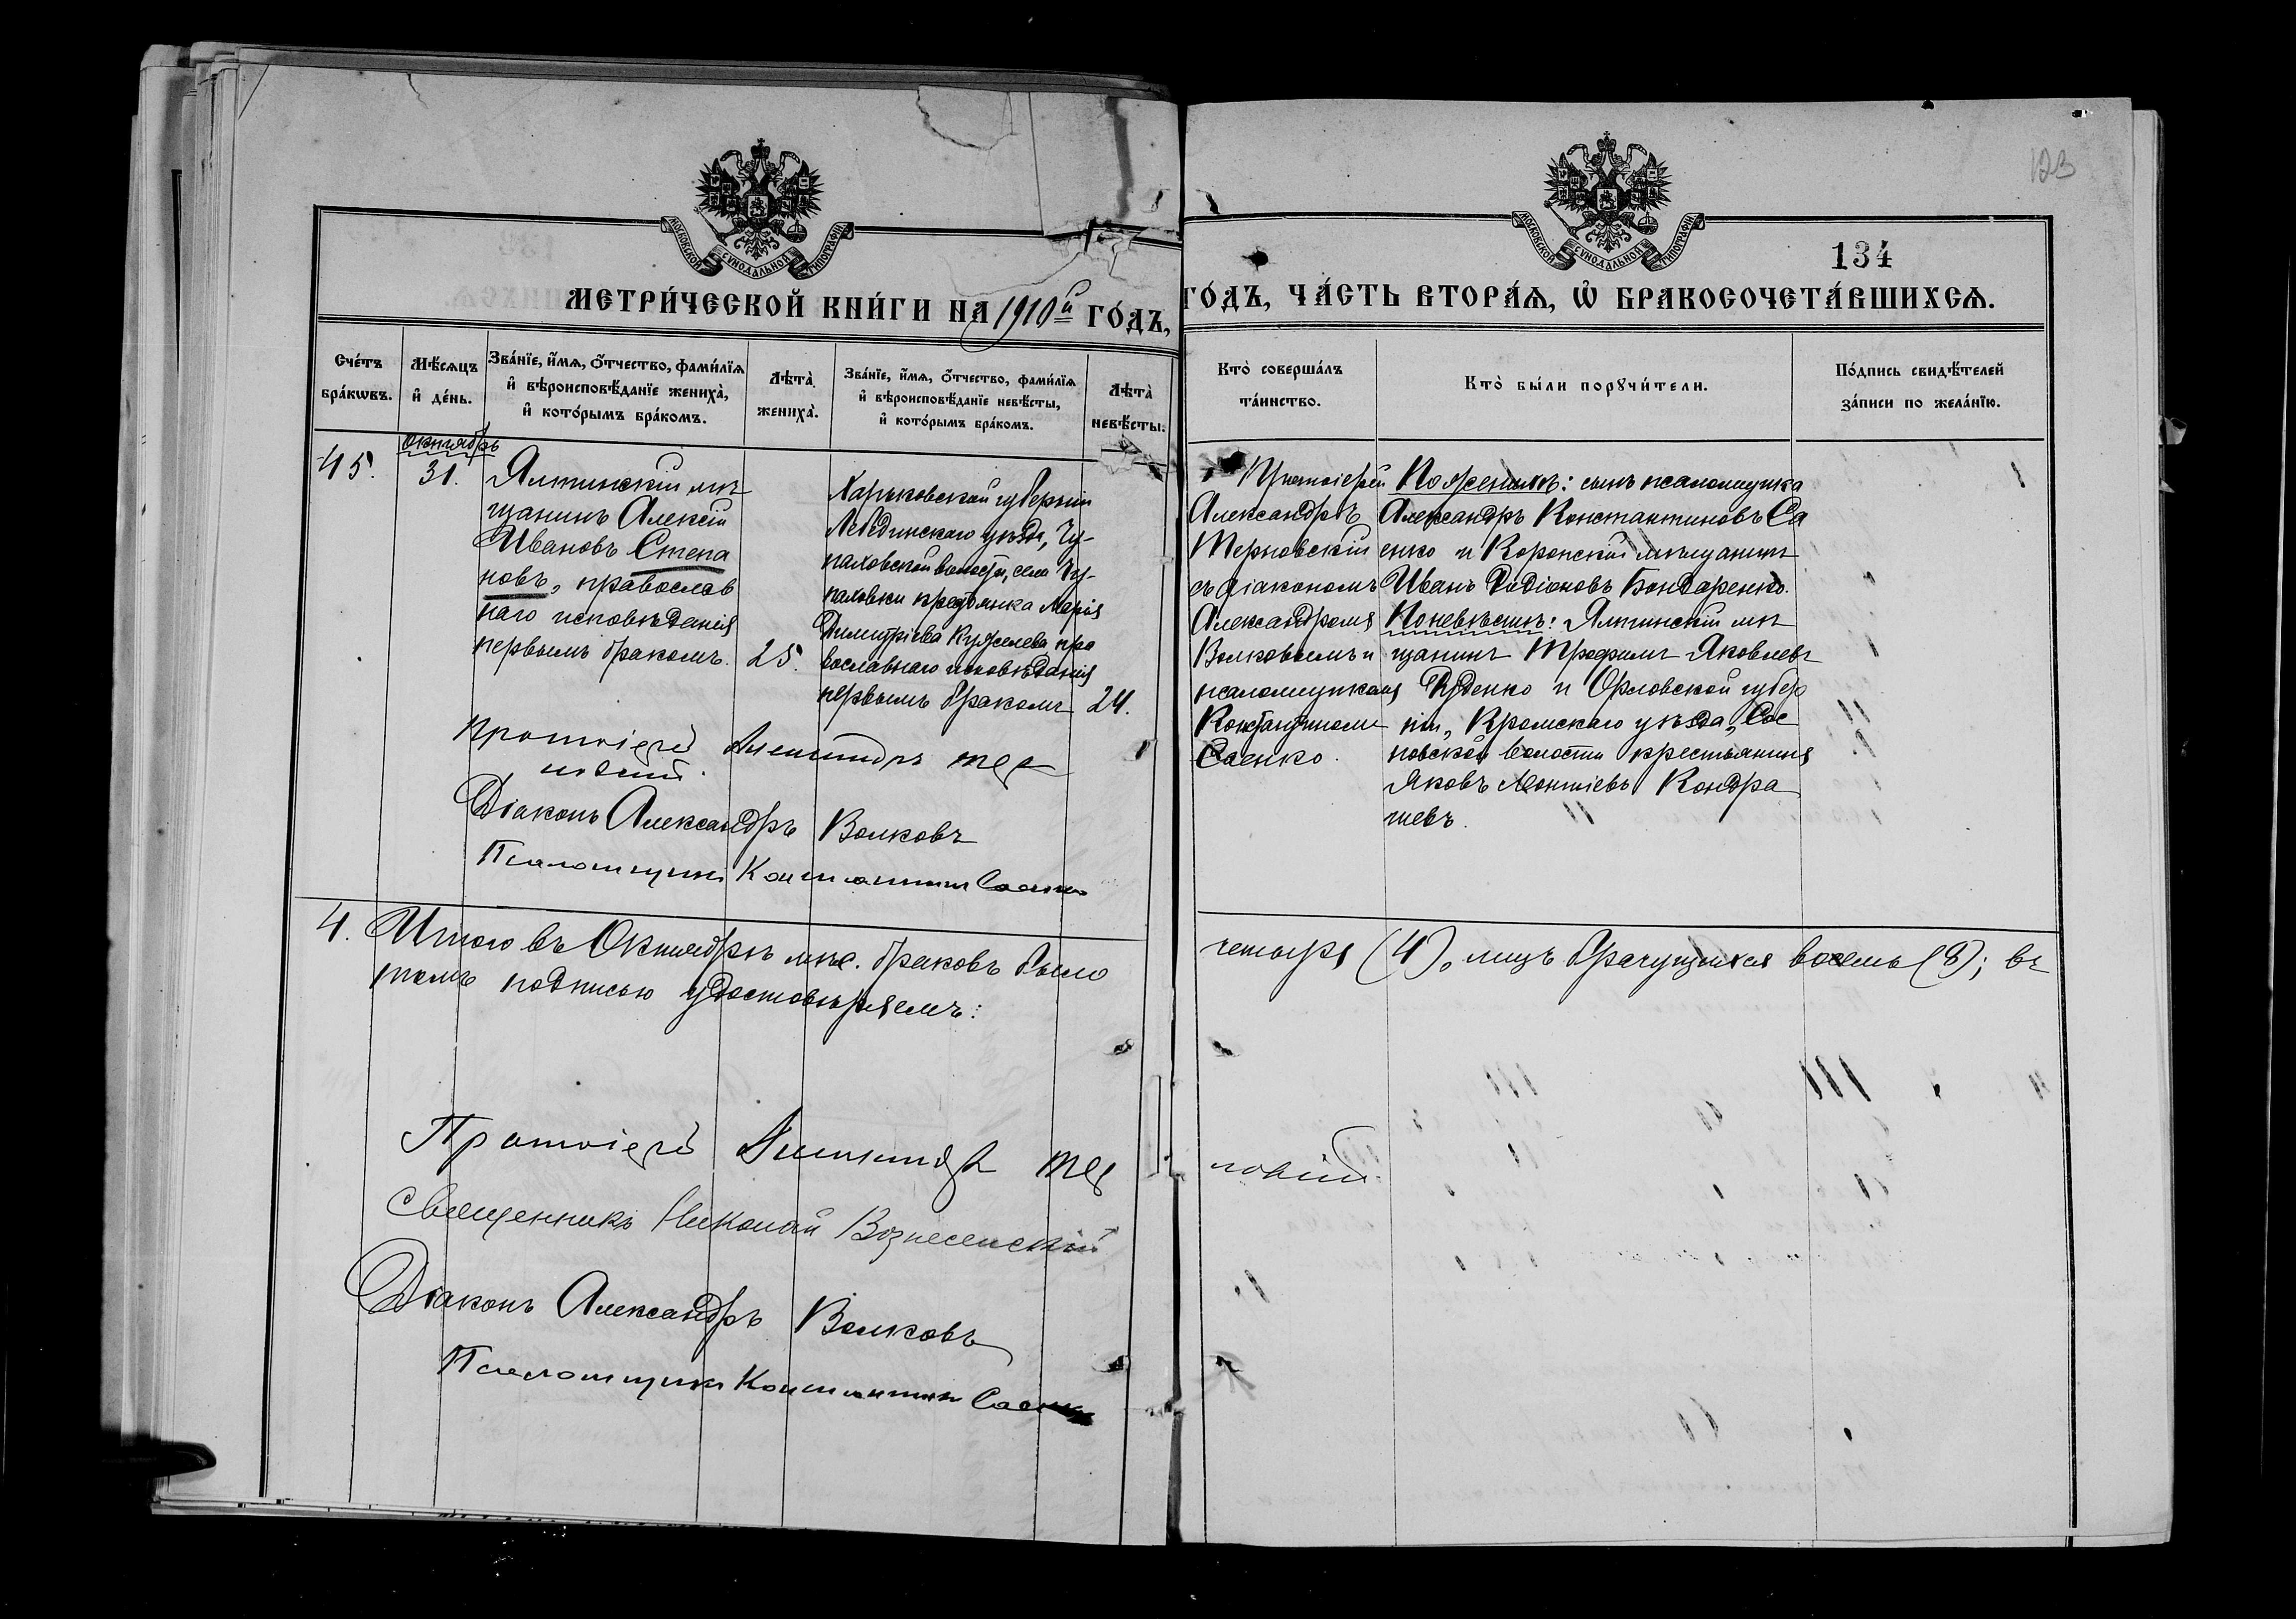 123
МОСКОВСКОЙ СУНОДАЛЬНОЙ ТИПОГРАФІИ
МОСКОВСКОЙ СУНОДАЛЬНОЙ ТИПОГРАФІИ
134
МЕТРИ́ЧЕСКОЙ КНИ́ГИ НА 1910й ГО́ДЪ,
ГО́ДЪ, ЧА́СТЬ ВТОРА́Ѧ, Ѽ БРАКОСОЧЕТА́ВШИХСѦ.
Сче́тъ
бра́кѡвъ.
Мѣ́сѧцъ
и҆ де́нь.
Зва́нїе, и҆́мѧ, ѻ҆́тчество, фами́лїѧ
и҆ вѣроисповѣ́данїе жениха̀,
и҆ кото́рымъ бра́комъ.
Лѣта̀
жениха̀.
Зва́нїе, и҆́мѧ, ѻ҆́тчество, фами́лїѧ
и҆ вѣроисповѣ́данїе невѣ́сты,
и҆ кото́рымъ бра́комъ.
Лѣта̀
невѣ́сты.
Кто̀ соверша́лъ
та́инство.
Кто̀ бы́ли порꙋчи́тели.
По́дпись свидѣ́телей
за́писи по жела́нїю.
45.
Октябрь
31.
Ялтинскій мѣ-
щанинъ Алексій
Ивановъ Степа
новъ, православ
наго исповѣданія
первымъ бракомъ.
25.
Харьковской губерніи
Лебединскаго уѣзда, Чу-
паховской волости, села Чу-
паховки крестьянка Марія
Димитріева Кужелева пра
вославнаго исповѣданія
первымъ бракомъ
24.
Протоіерей
Александръ
Терновскій
съ діакономъ
Александромъ
Волковымъ и
псаломщикомъ
Константиномъ
Саенко.
По женихѣ: сынъ псаломщика
Александръ Константиновъ Са
енко и Коропскій мѣщанинъ
Иванъ Родіоновъ Бондаренко.
По невѣстѣ: Ялтинскій мѣ
щанинъ Трофимъ Яковлевъ
Руденко и Орловской губер
ніи, Кромскаго уѣзда, Сос
новской волости крестьянинъ
Яковъ Леонтіевъ Кондра
шевъ.
Протоіерей Александръ Тер
новскій.
Діаконъ Александръ Волковъ
Псаломщикъ Константинъ Саенко
4. Итого въ Октябрѣ мѣс. браковъ было четыре (4), лицъ брачущихся восемь (8); въ
томъ подписью удостовѣряемъ:
Протоіерей Александръ Тер новскій.
Священникъ Николай Вознесенскій
Діаконъ Александръ Волковъ
Псаломщикъ Константинъ Саенко